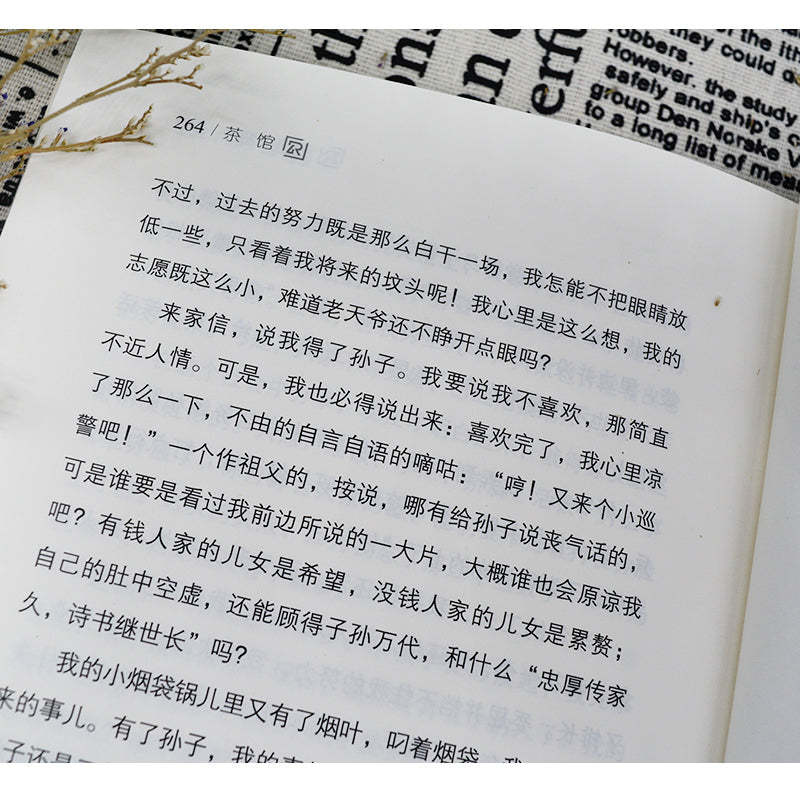 264 / 茶 馆
不过，过去的努力既是那么白干一场，我怎能不把眼睛放
低一些，只看着我将来的坟头呢！我心里是这么想，我的
志愿既这么小，难道老天爷还不睁开点眼吗？
来家信，说我得了孙子。我要说我不喜欢，那简直
不近人情。可是，我也必得说出来：喜欢完了，我心里凉
了那么一下，不由的自言自语的嘀咕：“哼！又来个小巡
警吧！”一个作祖父的，按说，哪有给孙子说丧气话的，
可是谁要是看过我前边所说的一大片，大概谁也会原谅我
吧？有钱人家的儿女是希望，没钱人家的儿女是累赘；
自己的肚中空虚，还能顾得子孙万代，和什么“忠厚传家
久，诗书继世长”吗？
我的小烟袋锅儿里又有了烟叶，叼着烟袋，我
来的事儿。有了孙子，我的
子还是
they could
robbers.
However, the study
safely and ship's
group Den Norske V
to a long list of
of the